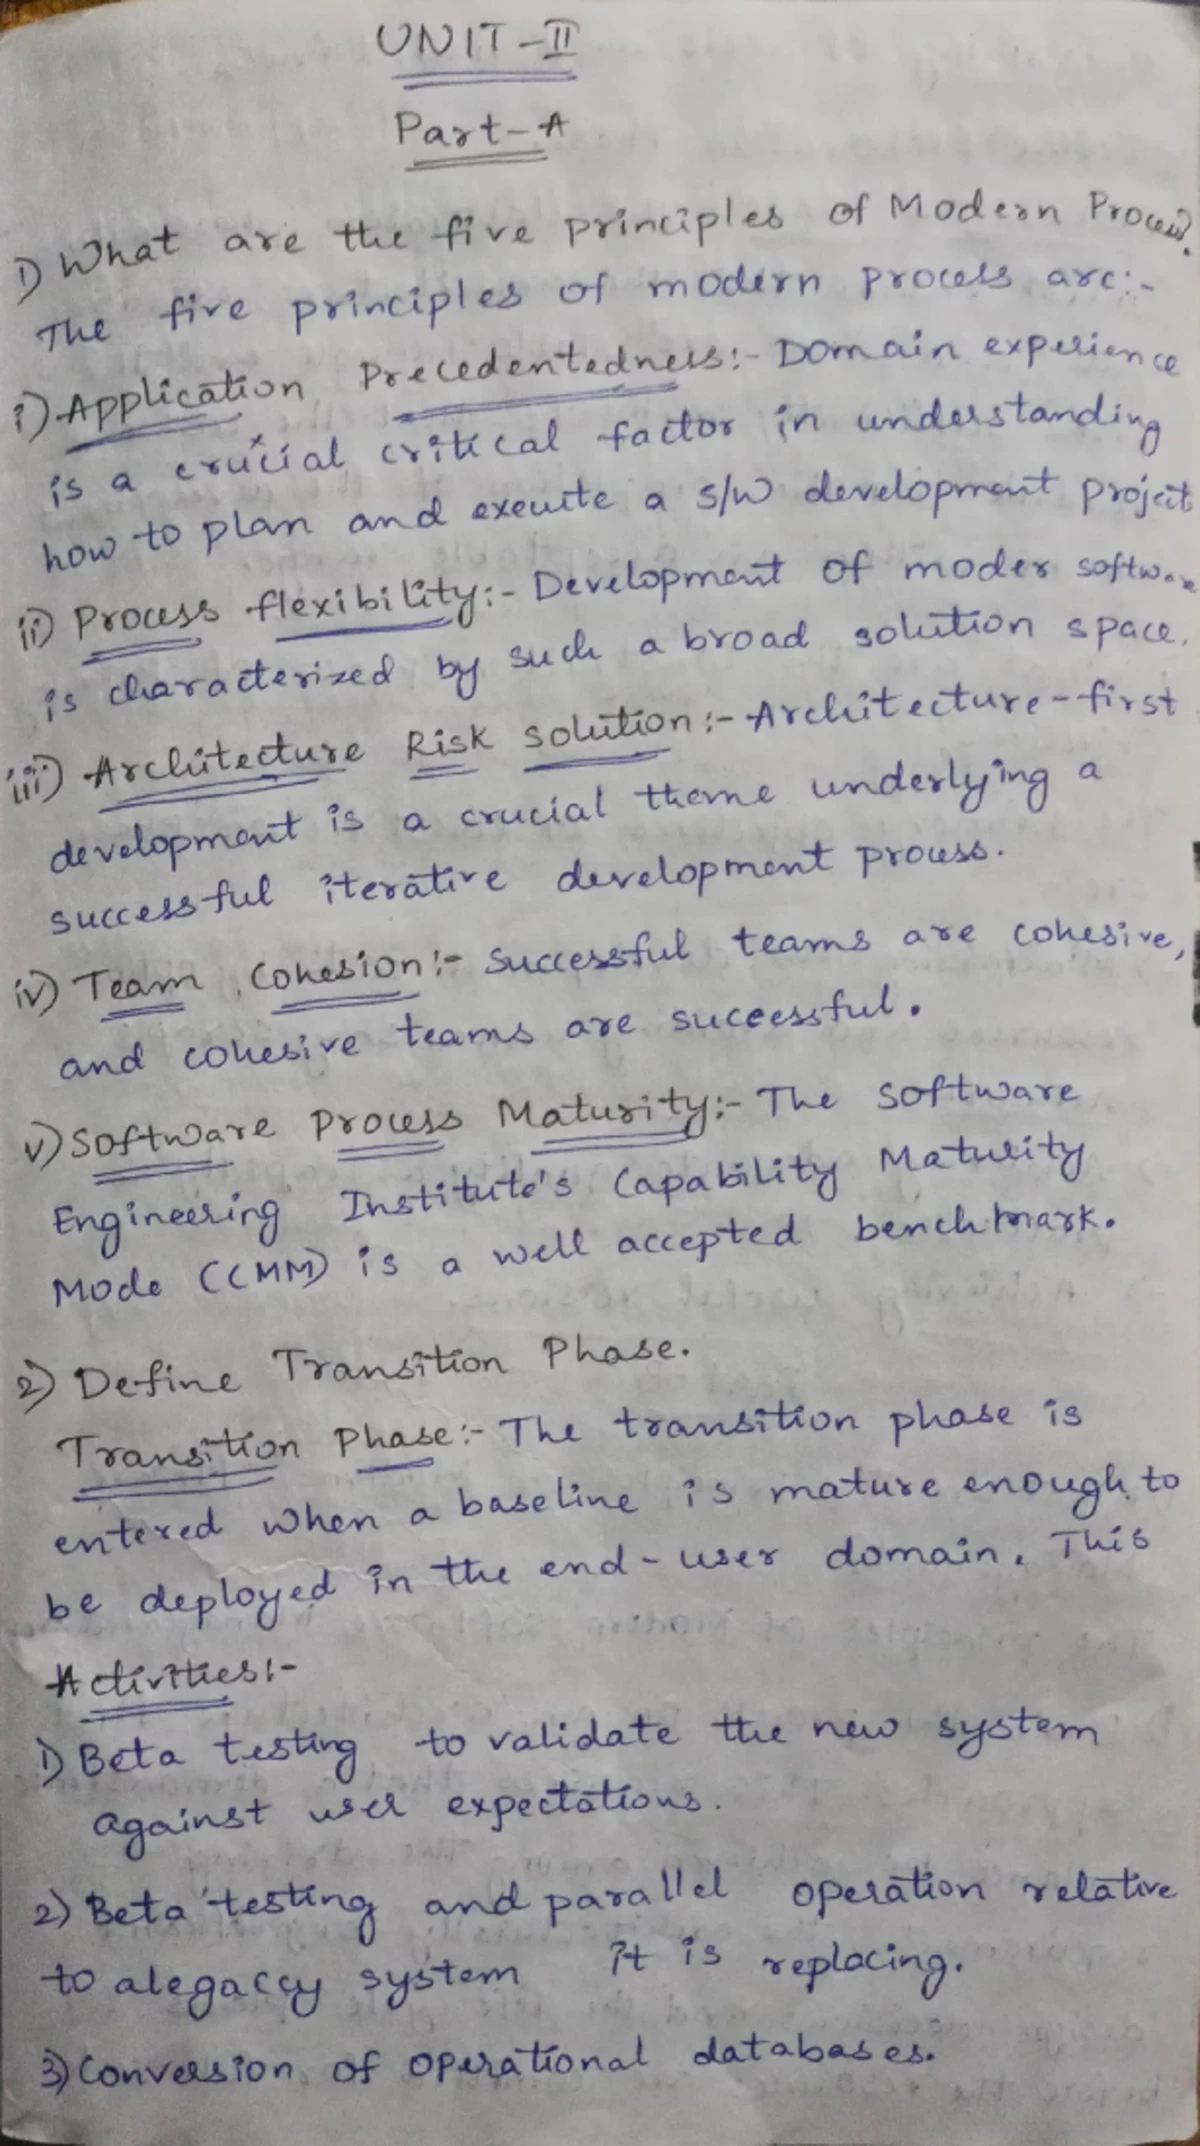 UNIT-II
Part-A
1) What are the five principles of Modern Process?
The five principles of modern process are:-
i) Application Precedentedness:- Domain experience
is a crucial critical factor in understanding
how to plan and execute a s/w development project
ii) Process flexibility:- Development of moder software
is characterized by such a broad solution space.
iii) Architecture Risk solution:- Architecture-first
development is a crucial theme underlying a
successful iterative development process.
iv) Team Cohesion:- Successful teams are cohesive,
and cohesive teams are successful.
v) Software Process Maturity:- The Software
Engineering Institute's Capability Maturity
Mode (CMM) is a well accepted benchmark.
2) Define Transition Phase.
Transition Phase:- The transition phase is
entered when a baseline is mature enough to
be deployed in the end-user domain. This
Activities:-
1) Beta testing to validate the new system
against user expectations.
2) Beta testing and parallel operation relative
to alegaccy system it is replacing.
3) Conversion of operational databases.